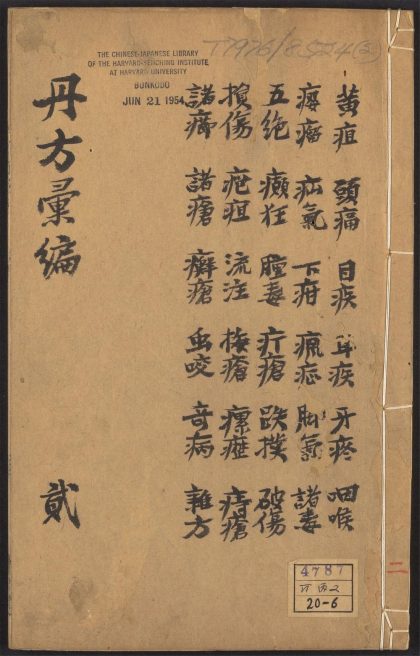 THE CHINESE-JAPANESE LIBRARY
OF THE HARVARD-YENCHING INSTITUTE
AT HARVARD UNIVERSITY
BUNKODO
JUN 21 1954
T7976/8554(2)
黃疸 頭痛 目疾 耳疾 牙疼 咽喉
瘿瘤 疝氣 下疳 瘋症 脚氣 諸毒
五绝 癲狂 腫毒 疔瘡 跌撲 破傷
損傷 疽 流注 瘡 瘰癧 痔瘡
諸 諸瘡 癬瘡 虫咬 奇病 雜方
丹方彙編 貳
4787
20-6
二